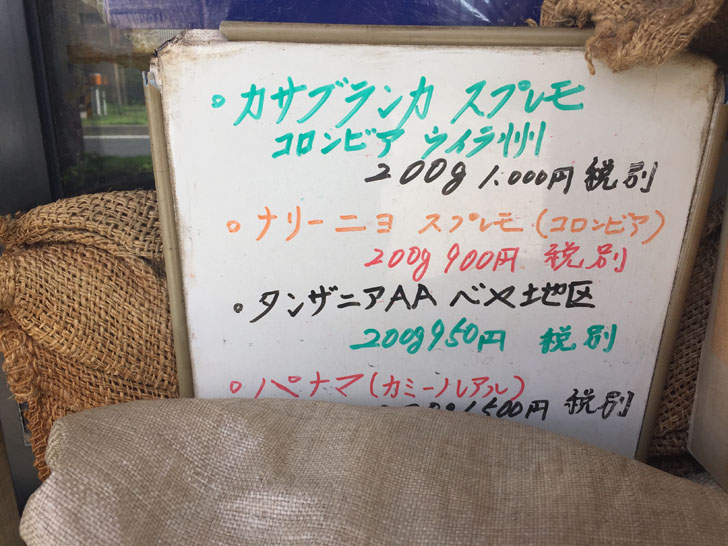 ・カサブランカ スプレモ
コロンビア ウイラ州
200g 1.000円 税別
・ナリーニョ スプレモ(コロンビア)
200g 900円 税別
・タンザニアAA ベメ地区
200g 950円 税別
・パナマ(カミーノレアル)
500円 税別